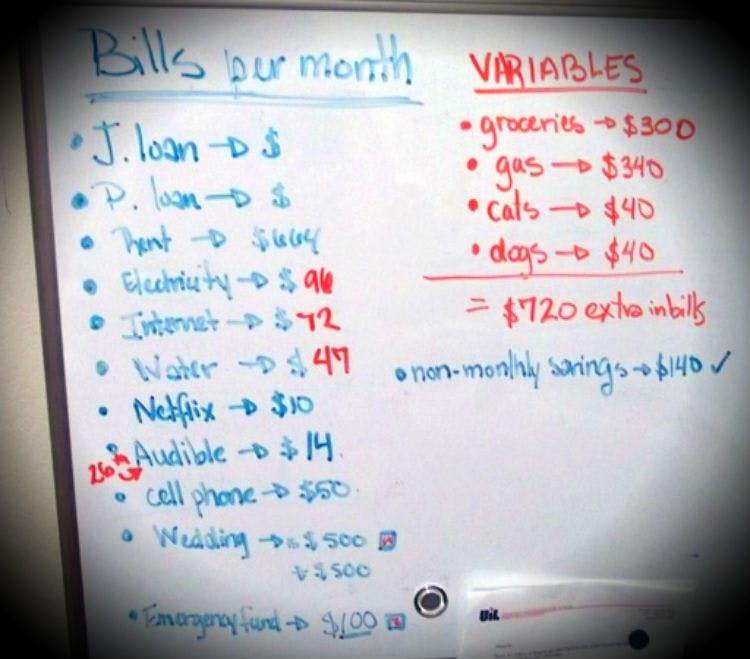 Bills per month
• J. loan → $
• P. loan → $
• Rent → $664
• Electricity → $ 96
• Internet → $ 72
• Water → $ 47
• Netflix → $10
• Audible → $ 14.
26th
• cell phone → $50.
• Wedding → $500
+ $500
• Emergency fund → $100
VARIABLES
• groceries → $300
• gas → $340
• cats → $40
• dogs → $40
= $720 extra in bills
• non-monthly savings → $140 ✓
UiL